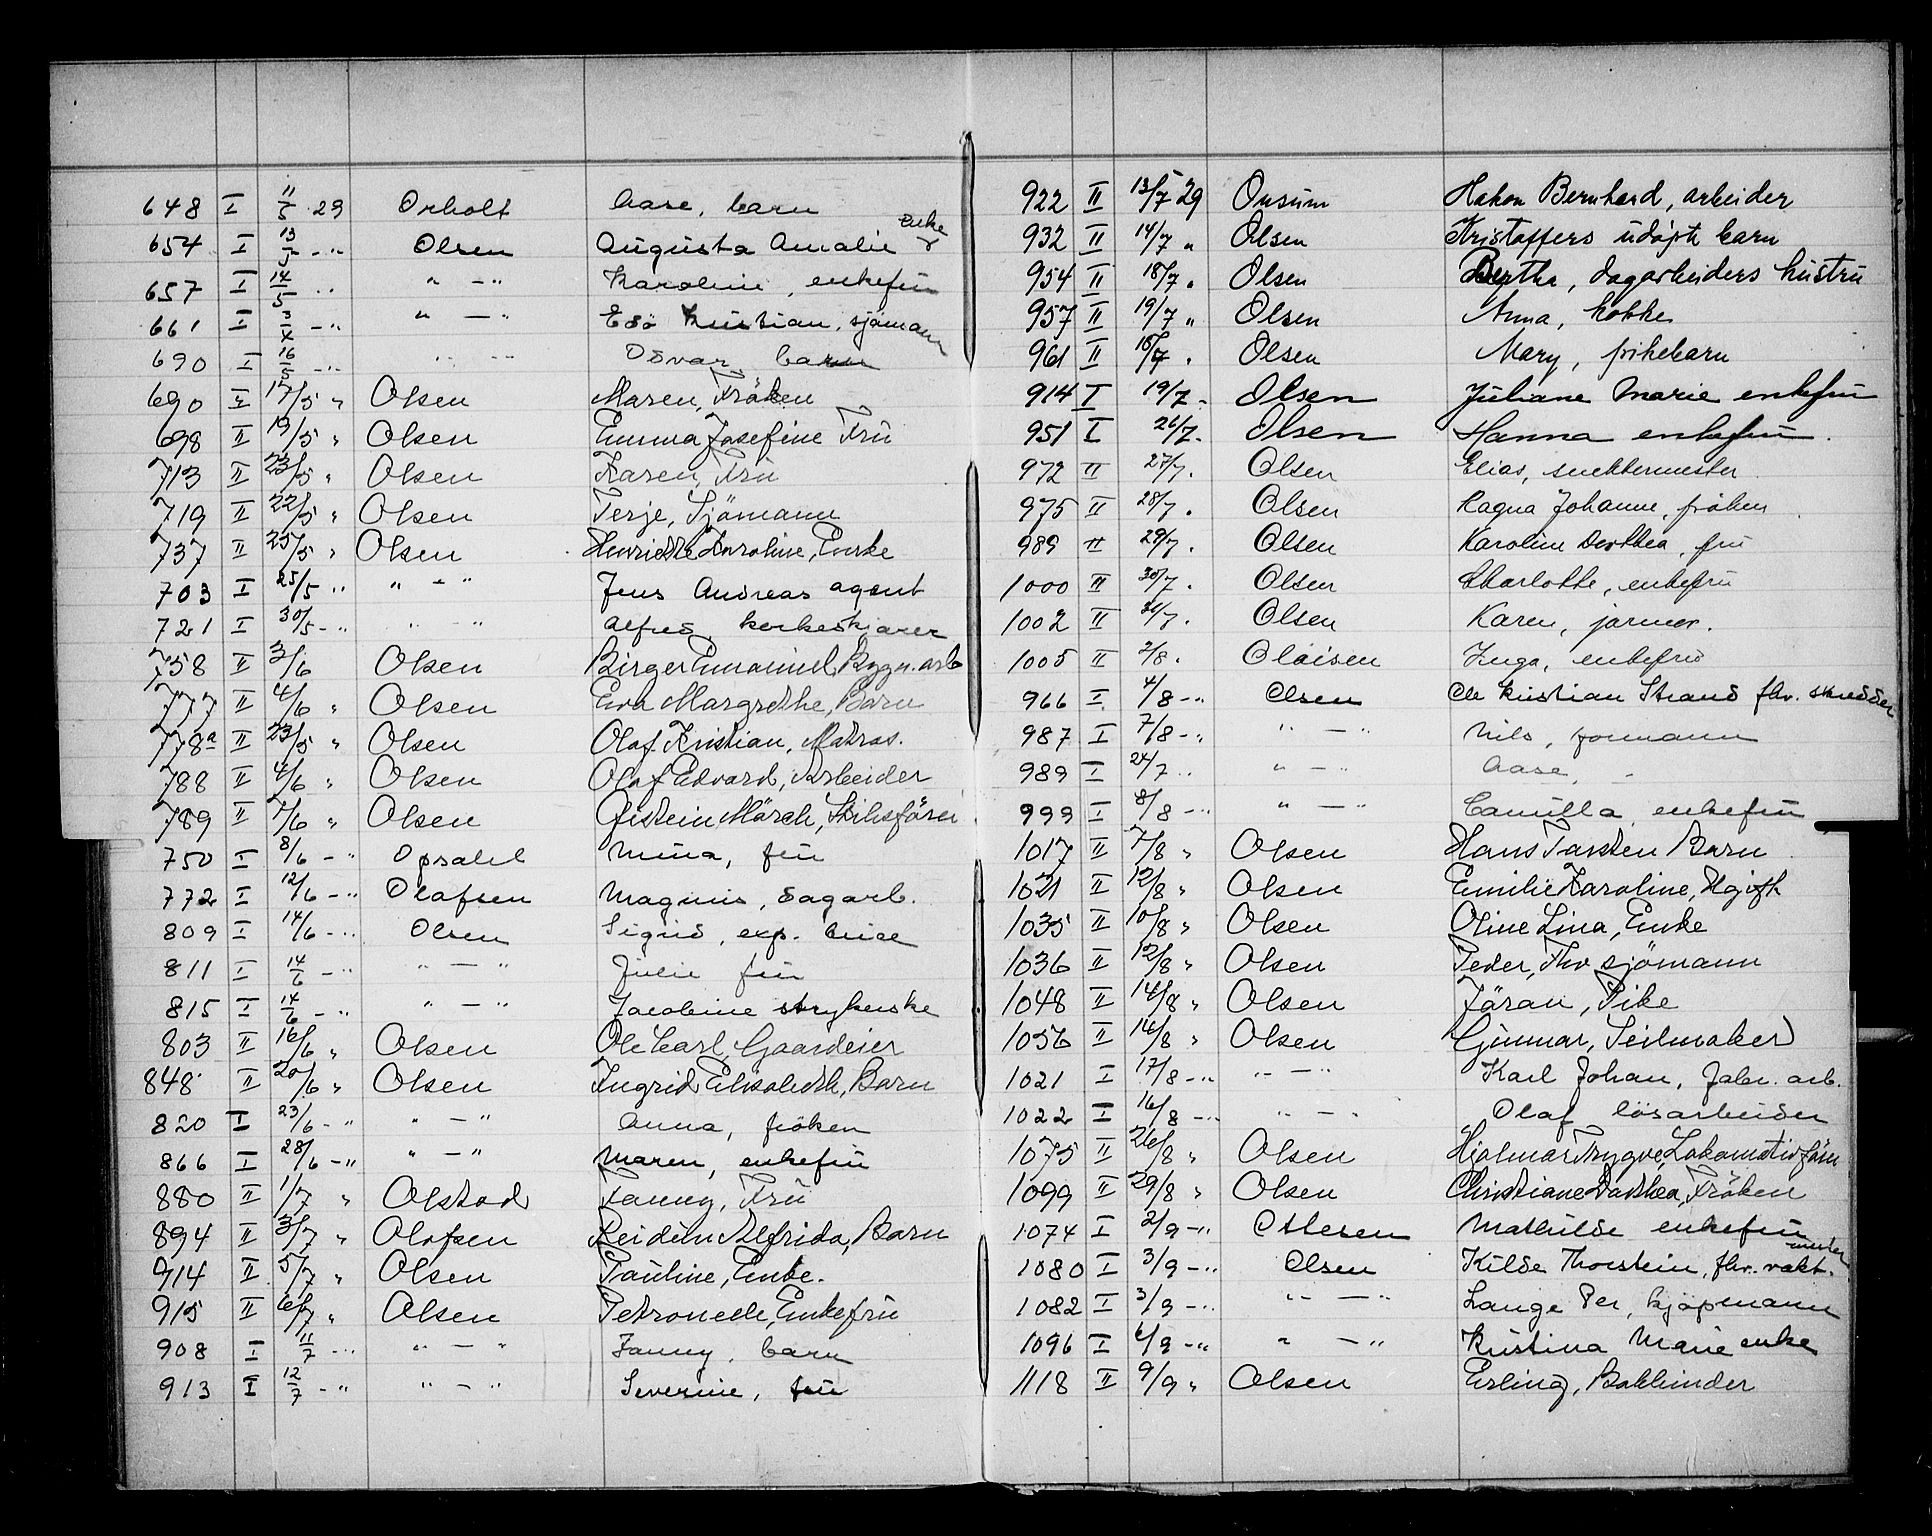 648 I 11/5 29 Orholt Aase, barn
654 I 13/5 - " Olsen Augusta Amalie enke
657 I 14/5 " " - " Karoline, enkefru
661 I 3/4 - " " - " Edö Kristian, sjömann
690 I 16/5 - " " - " Osvar, barn
690 I 17/5 " Olsen Maren, Fröken
698 II 19/5 " Olsen Emma Josefine Fru
713 II 23/5 " Olsen Karen, Fru
719 II 22/5 " Olsen Terje, Sjömann
737 II 25/5 " Olsen Henriette Karoline, Enke
703 I 25/5 " " - " Jens Andreas agent
721 I 30/5 - " " - " Alfred, korkeskjærer
758 II 3/6 Olsen Birger Emanuel, Bygn. arb
777 II 4/6 " Olsen Eva Margrethe, Barn
778a II 23/5 " Olsen Olaf Kristian, Matros.
788 II 4/6 " Olsen Olaf Edvard, Arbeider
789 II 7/6 " Olsen Øistein Mörch, Skibsförer
750 I 8/6 - " Opsahl Mina, fru
772 I 12/6 - " Olafsen Magnus, dagarb.
809 I 14/6 - " Olsen Sigrid, exp. trice
811 I 14/6 - " " - " Julie fru
815 I 14/6 - " " - " Jacobine strykerske
803 II 16/6 " Olsen Ole Carl, Gaardeier
848 II 20/6 " Olsen Ingrid Elisabeth, Barn
820 I 23/6 - " " - " Anna, fröken
866 I 28/6 - " " - " Maren, enkefru
880 II 1/7 " Olstad Fanny, Fru
894 II 3/7 " Olafsen Reidun Alfrida, Barn
914 II 5/7 " Olsen Pauline, Enke.
915 II 6/7 " Olsen Petronelle, Enkefru
908 I 11/7 - " " - " Fanny, barn
913 I 12/7 - " " - " Severine, fru
922 II 13/7 29 Onsum Hakon Bernhard, arbeider
932 II 14/7 " Olsen Kristoffers udöpt barn
954 II 18/7 " Olsen Bertha, dagarbeiders hustru
957 II 19/7 " Olsen Anna, kokke
961 II 18/7 " Olsen Mary, pikebarn
914 I 19/7 - Olsen Juliane Marie enkefru
951 I 26/7 - Olsen Hanna enkefru.
972 II 27/7. Olsen Elias, snekkermester
975 II 28/7. Olsen Ragna Johanne, fröken
989 II 29/7. Olsen Karoline Dorthea, fru
1000 II 30/7. Olsen Charlotte, enkefru
1002 II 31/7. Olsen Karen, jormor.
1005 II 2/8. Olaisen Inga, enkefru
966 I 4/8 - " Olsen Ole Kristian Strand fhv. skredder
987 I 7/8 - " " - " Nils, formann
989 I 24/7 " " - " Aase, -
999 I 8/8 - " " - " Camilla, enkefru
1017 II 7/8 " Olsen Hans Torsten Barn
1021 II 12/8 " Olsen Emilie Karoline, Ugift
1035 II 10/8 " Olsen Oline Lina, Enke
1036 II 12/8 " Olsen Peder, Fhv sjömann
1048 II 14/8 " Olsen Jöran, Pike
1056 II 14/8 " Olsen Gunnar, Seilmaker
1021 I 17/8 - " " - " Karl Johan, fabr. arb.
1022 I 16/8 - " " - " Olaf lösarbeider
1075 II 26/8 " Olsen Hjalmar Trygve, Lokomotivförer
1099 II 29/8 " Olsen Christiane Dorthea, Fröken
1074 I 2/9 - " Ottesen Mathilde enkefru
1080 I 3/9 - " Olsen Kilde Thorstein, fhv. vakt.mester
1082 I 3/9 - " " - " Lange Per, kjöpmann
1096 I 6/9 - " " - " Kristina Marie enke
1118 II 9/9 " Olsen Erling, Bokbinder